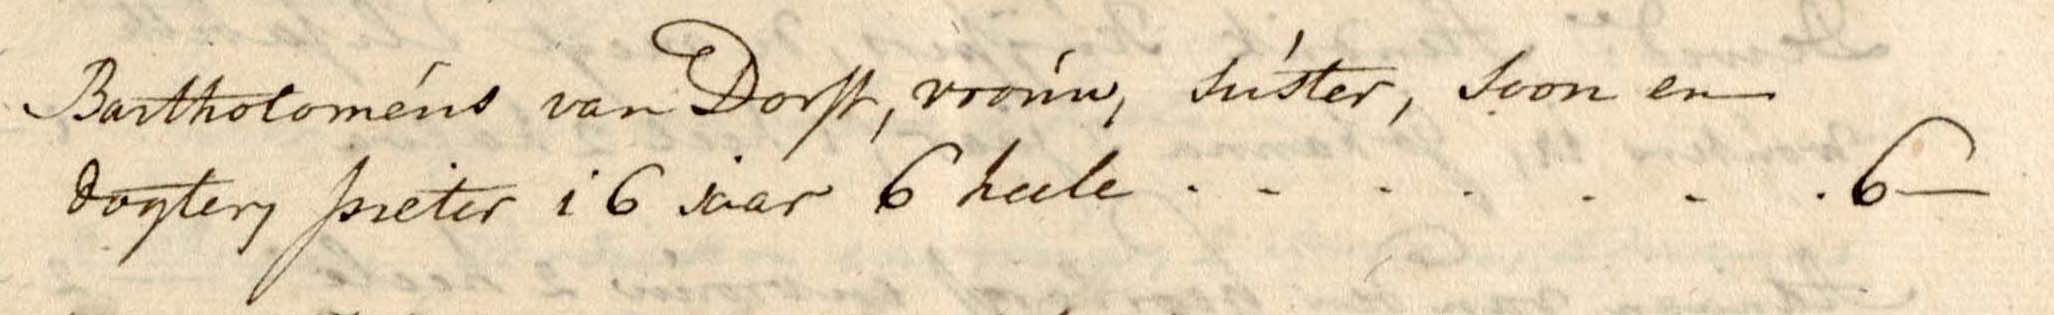 Bartholoméus van Dorst, vrouw, súster, soon en
dogter, pieter i6 jaar 6 heele . . . . . . . 6 —